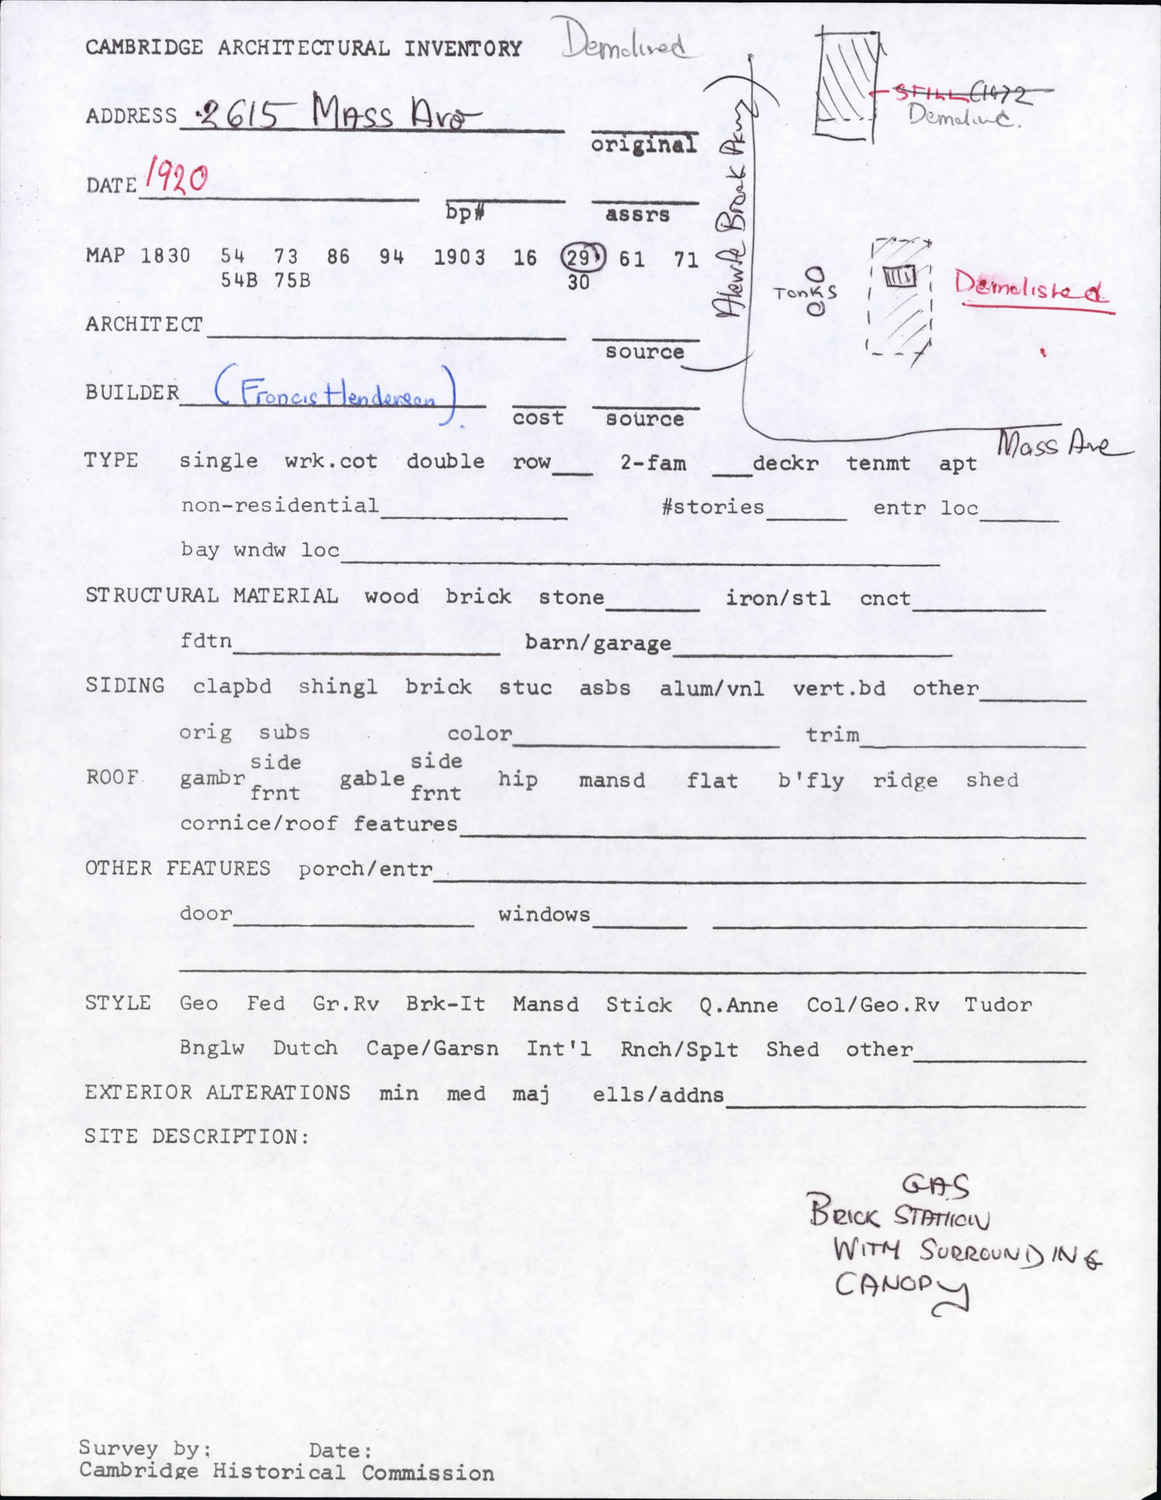 CAMBRIDGE ARCHITECTURAL INVENTORY Demolished
ADDRESS 2615 Mass Ave
original
DATE 1920
bp# assrs
MAP 1830 54 73 86 94 1903 16 29 61 71
54B 75B 30
ARCHITECT
source
BUILDER (Francis Henderson)
cost source
STILL (1972
Demolished.
Alewife Brook Pkwy
Tanks
Demolished
Mass Ave
TYPE single wrk.cot double row___ 2-fam ___deckr tenmt apt
non-residential #stories entr loc
bay wndw loc
STRUCTURAL MATERIAL wood brick stone iron/stl cnct
fdtn barn/garage
SIDING clapbd shingl brick stuc asbs alum/vnl vert.bd other
orig subs color trim
side side
ROOF gambr gable hip mansd flat b'fly ridge shed
frnt frnt
cornice/roof features
OTHER FEATURES porch/entr
door windows
STYLE Geo Fed Gr.Rv Brk-It Mansd Stick Q.Anne Col/Geo.Rv Tudor
Bnglw Dutch Cape/Garsn Int'l Rnch/Splt Shed other
EXTERIOR ALTERATIONS min med maj ells/addns
SITE DESCRIPTION:
GAS
BRICK STATION
WITH SURROUNDING
CANOPY
Survey by: Date:
Cambridge Historical Commission